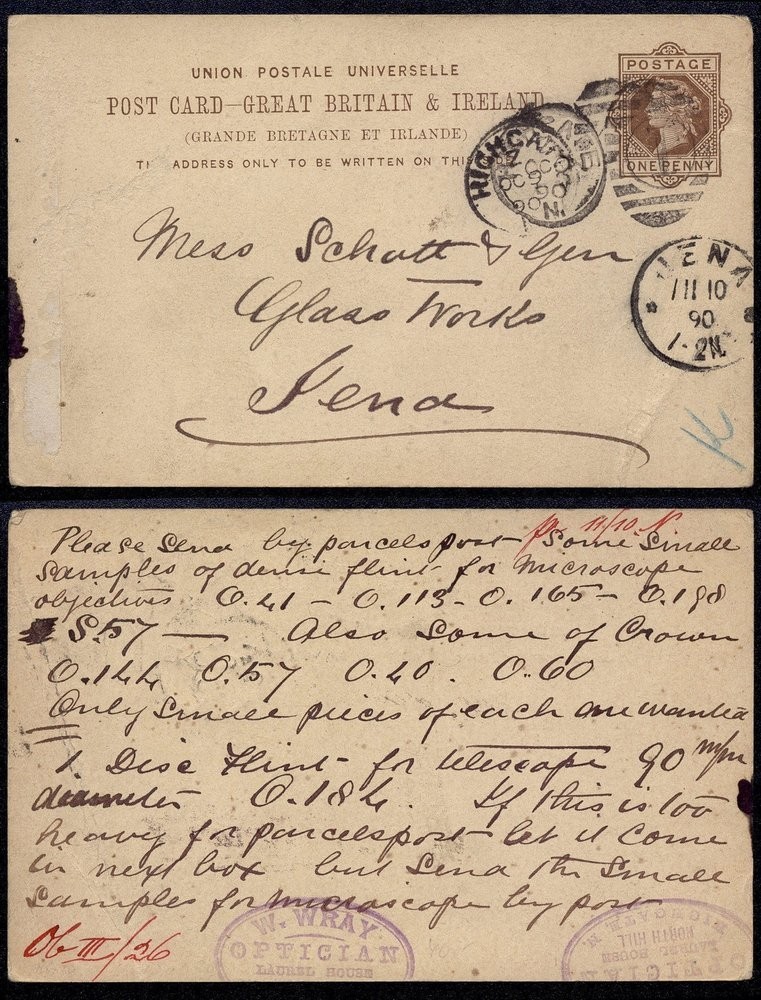 UNION POSTALE UNIVERSELLE
POST CARD—GREAT BRITAIN & IRELAND
(GRANDE BRETAGNE ET IRLANDE)
ADDRESS ONLY TO BE WRITTEN ON THE
POSTAGE
ONE PENNY
HIGHGATE
N
90
JENA
10
90
1-2N.
Mess Schott & Gen
Glass Works
Jena
K
11/10 N
Please send by parcels post some small
samples of dense flint for microscope
objectives O.41 — O.113 - O.165 — O.198
S.57 — Also some of Crown
O.144 O.57 O.40 . O.60
Only small pieces of each are wanted
1. Disc Flint for telescope 90 m/m
diameter O.184. If this is too
heavy for parcelspost let it come
in next box but send the small
samples for microscope by post
Ob III/26
W. WRAY
OPTICIAN
LAUREL HOUSE
HIGHGATE N.
NORTH HILL
LAUREL HOUSE
OPTICIAN